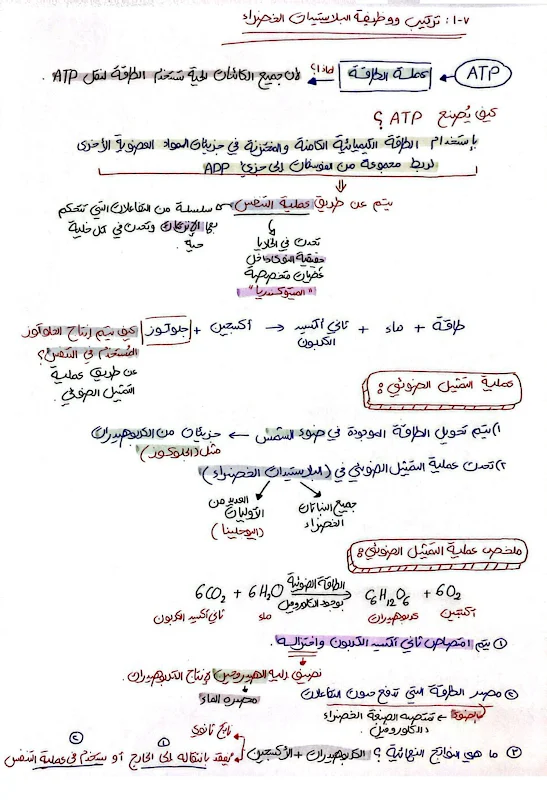 ٧-١: تركيب ووظيفة البلاستيدات الخضراء
ATP ← عملة الطاقة لماذا؟ ← لأن جميع الكائنات الحية تستخدم الطاقة لنقل ATP.
كيف يُصنع ATP ؟
بإستخدام الطاقة الكيميائية الكامنة والمختزنة في جزيئات المواد العضوية الأخرى
لربط مجموعة من الفوسفات إلى جزيء ADP
يتم عن طريق عملية التنفس ← سلسلة من التفاعلات التي تتحكم
بها الإنزيمات وتحدث في كل خلية
حية.
تحدث في الخلايا
حقيقية النواة داخل
عُضيات متخصصة
"الميتوكندريا"
جلوكوز + أكسجين → ثاني أكسيد الكربون + ماء + طاقة
كيف يتم إنتاج الجلوكوز
المُستخدم في التنفس؟
عن طريق عملية
التمثيل الضوئي.
عملية التمثيل الضوئي:
١) يتم تحويل الطاقة الموجودة في ضوء الشمس ← جزيئات من الكربوهيدرات
مثل (الجلوكوز)
٢) تحدث عملية التمثيل الضوئي في (البلاستيدات الخضراء)
جميع النباتات
الخضراء
العديد من
الأوليات
(اليوجلينا)
ملخص عملية التمثيل الضوئي:
6CO2 + 6H2O الطاقة الضوئية بوجود الكلوروفيل → C6H12O6 + 6O2
ثاني أكسيد الكربون ماء كربوهيدرات أكسجين
① يتم امتصاص ثاني أكسيد الكربون واختزاله.
نضيف إليه الهيدروجين لإنتاج الكربوهيدرات.
مصدره الماء
② مصدر الطاقة التي تدفع حدوث التفاعلات
الضوء ← تمتصه الصبغة الخضراء
"الكلوروفيل"
③ ما هي النواتج النهائية ؟ الكربوهيدرات + الأكسجين
ناتج ثانوي
① ②
يُفقد بانتقاله إلى الخارج أو يستخدم في عملية التنفس